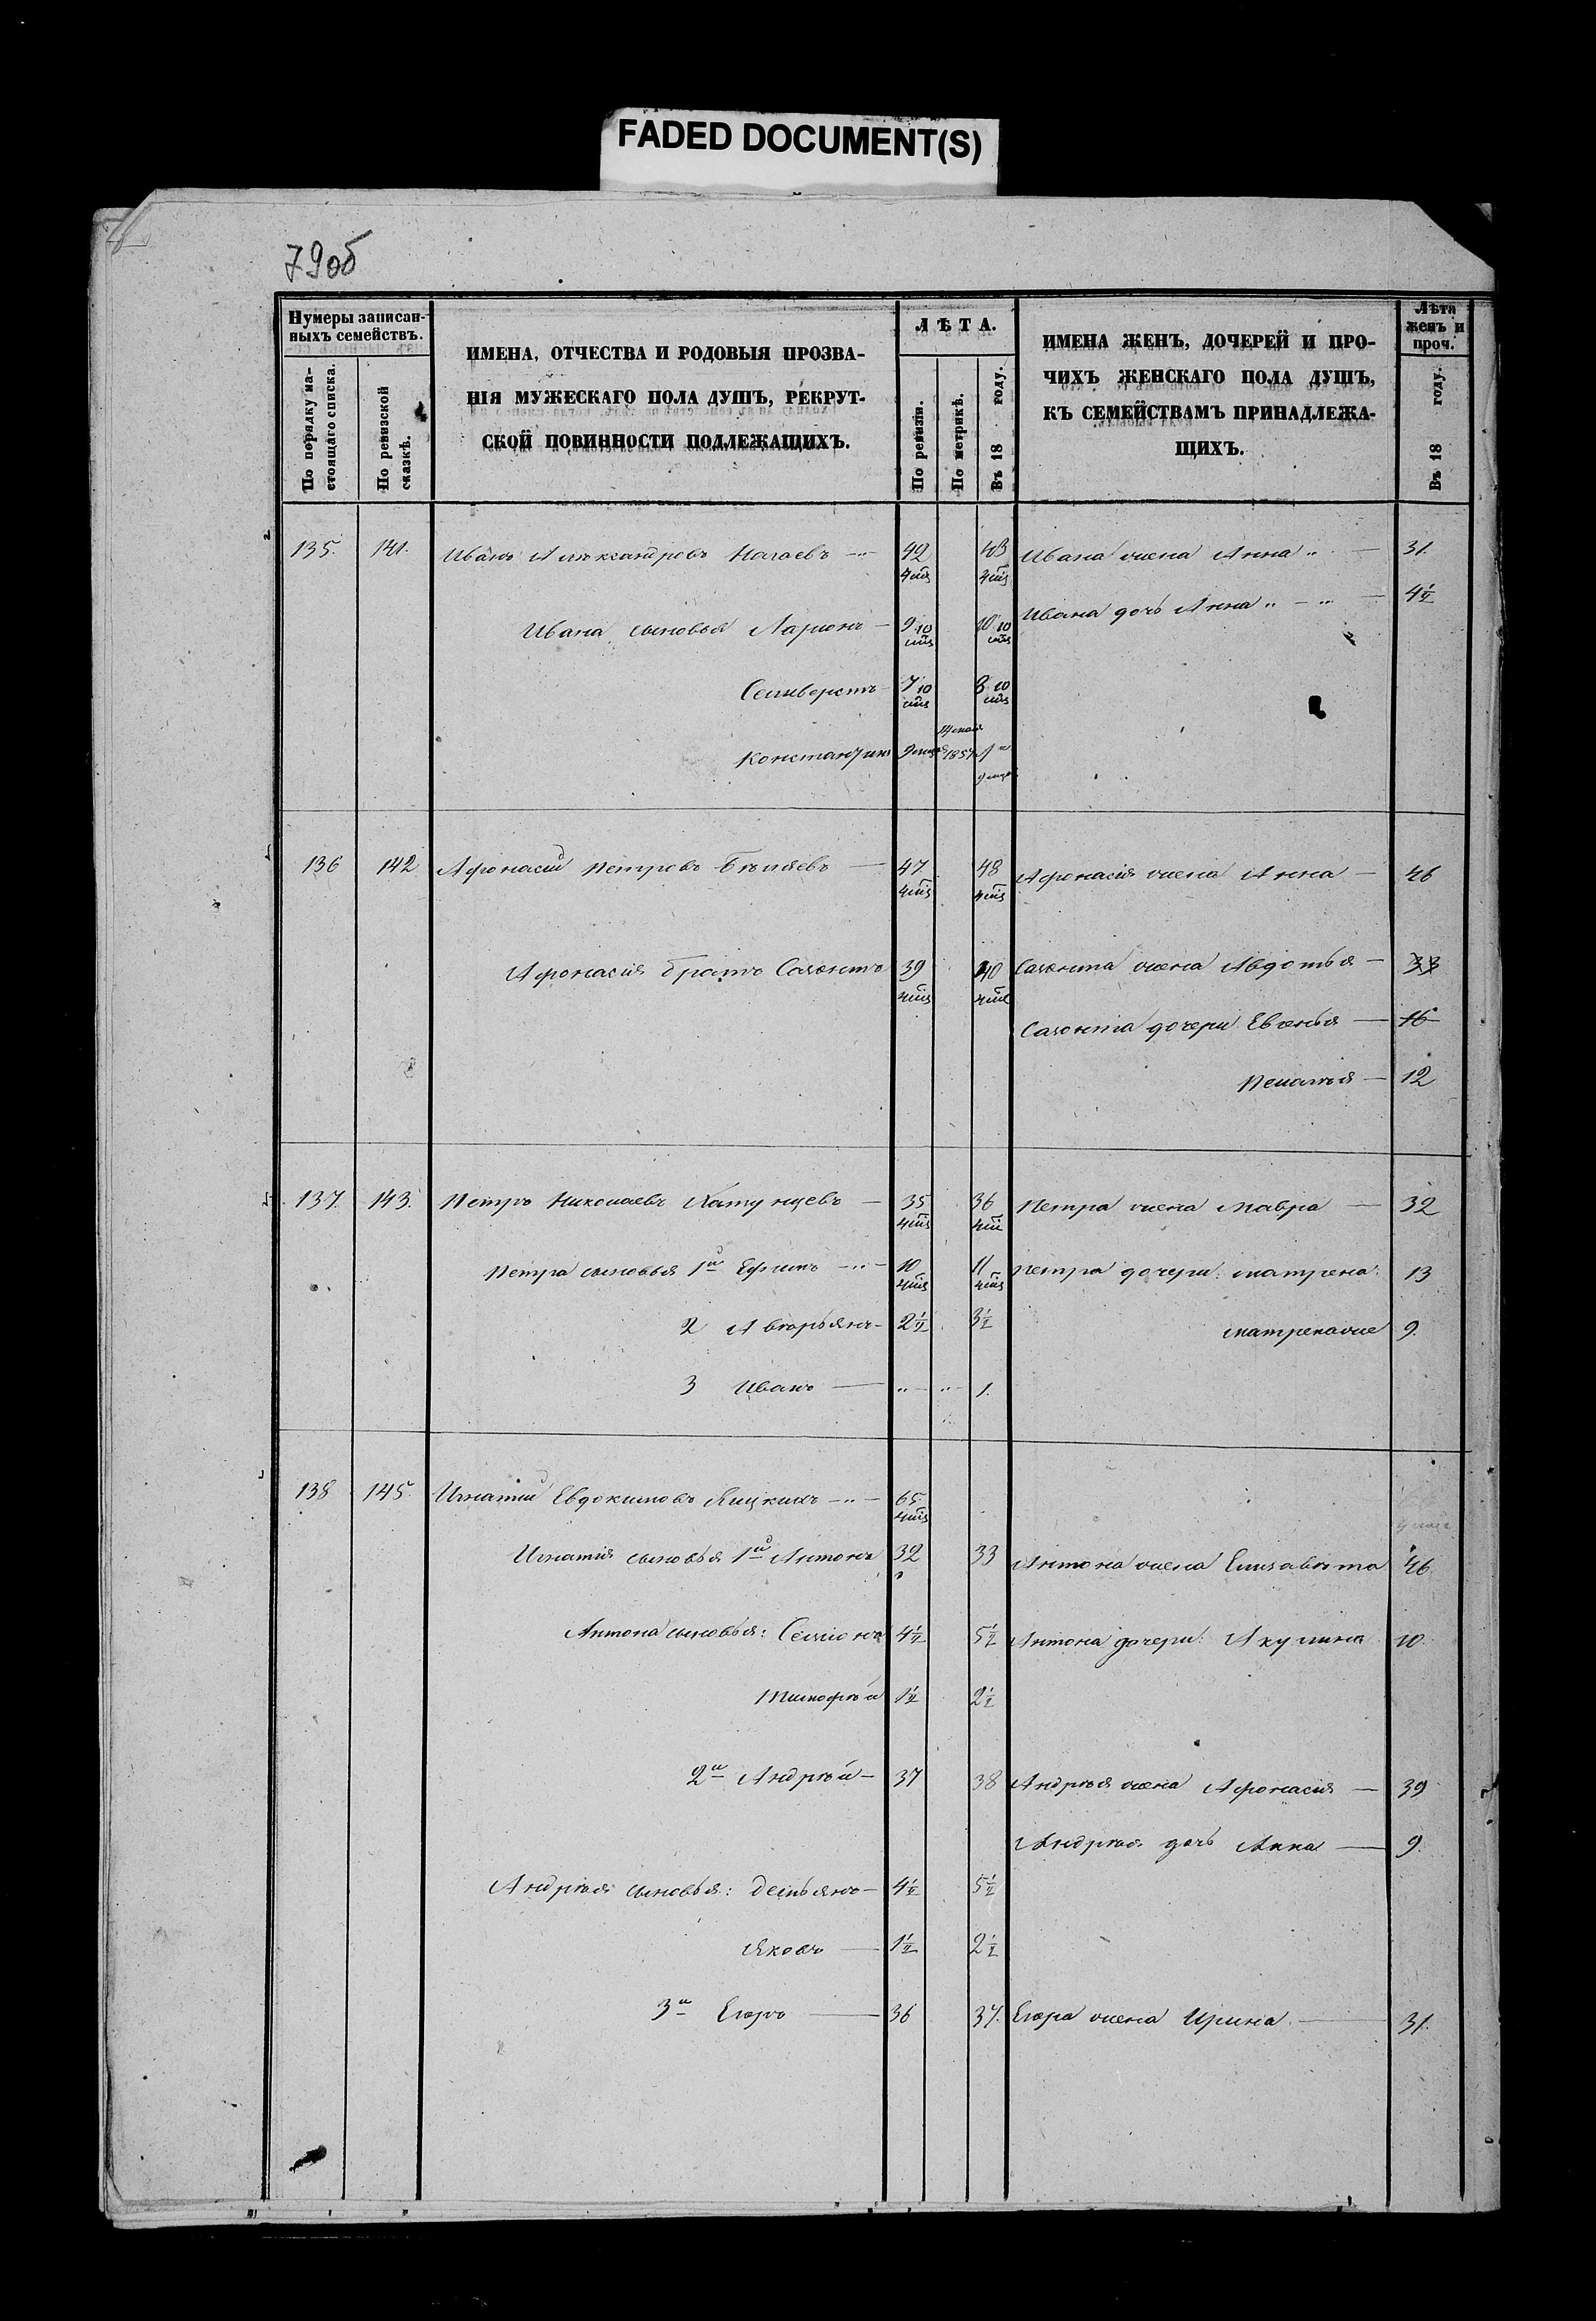 FADED DOCUMENT(S)
79об
Нумеры записан-
ныхъ семействъ.
По порядку на-
стоящаго списка.
По ревизской
сказкѣ.
ИМЕНА, ОТЧЕСТВА И РОДОВЫЯ ПРОЗВА-
НІЯ МУЖЕСКАГО ПОЛА ДУШЪ, РЕКРУТ-
СКОЙ ПОВИННОСТИ ПОДЛЕЖАЩИХЪ.
ЛѢТА.
По ревизіи.
По метрикѣ.
Въ 18 году.
ИМЕНА ЖЕНЪ, ДОЧЕРЕЙ И ПРО-
ЧИХЪ ЖЕНСКАГО ПОЛА ДУШЪ,
КЪ СЕМЕЙСТВАМЪ ПРИНАДЛЕЖА-
ЩИХЪ.
Лѣта
женъ и
проч.
Въ 18 году.
135. 141. Иванъ Александровъ Нагаевъ 42 43 Ивана жена Анна 31.
Ивана дочь Анна 4½
Ивана сыновья Ларіонъ 9 10 10 10
Селиверстъ 7 10 8 10
Константинъ 1857
136 142 Афонасій Петровъ Бѣляевъ 47 48 Афонасія жена Анна 46
Афонасія братъ Сазонтъ 39 40 Сазонта жена Авдотья 33
Сазонта дочери Евгенья 16
Пелагѣя 12
137. 143. Петръ Николаевъ Хатунцевъ 35 36 Петра жена Мавра 32
Петра сыновья 1й Ефимъ 10 11 Петра дочери: Матрена: 13
2 Аверьянъ 2½ 3½ Матрена же 9.
3 Иванъ 1.
138 145. Игнатій Евдокимовъ Яицкихъ 65
Игнатія сыновья 1й Антонъ 32 33 Антона жена Елизавѣта 26
Антона сыновья: Семіонъ 4½ 5½ Антона дочери: Акулина 10.
Тимофѣй 1½ 2½
2й Андрѣй 37 38 Андрѣя жена Афонасія 39
Андрѣя дочь Анна 9.
Андрѣя сыновья: Демьянъ 4½ 5½
Яковъ 1½ 2½
3й Егоръ 36 37. Егора жена Ирина 31.